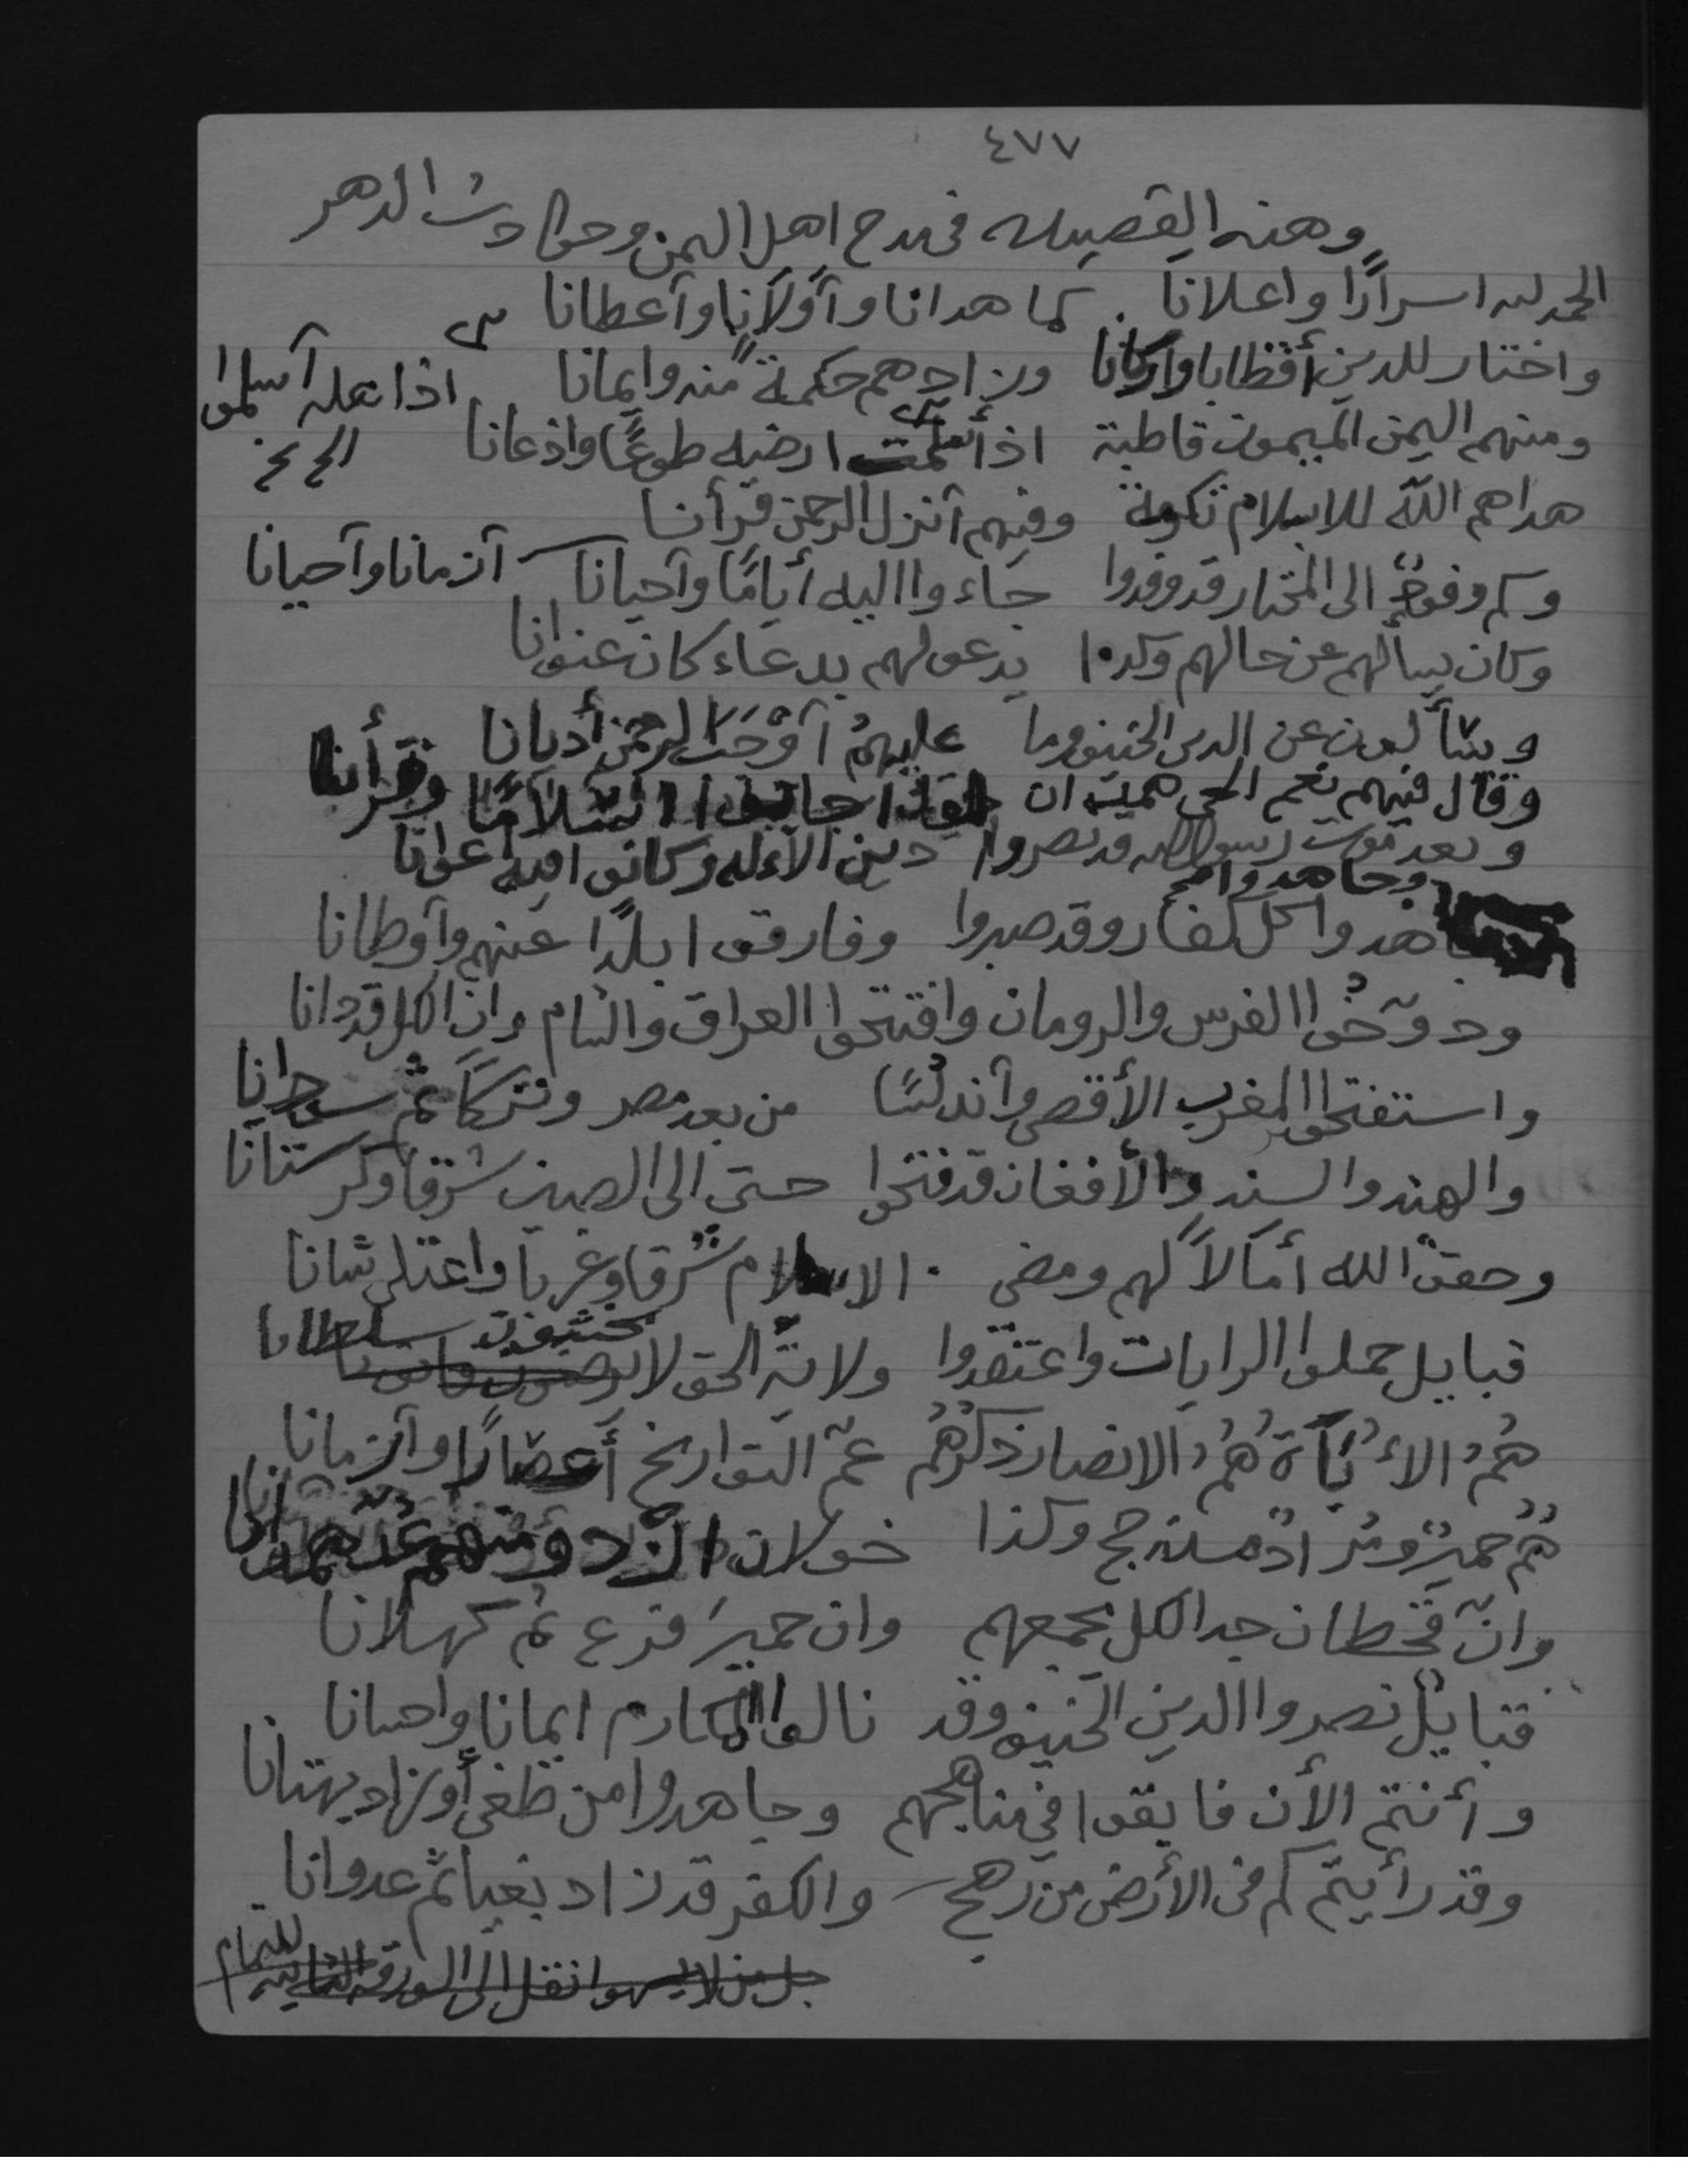 ٤٧٧
وهذه القصيده في مدح اهل اليمن وحوادث الدهر
الحمد لله اسرارًا واعلانا كما هدانا وآولانا وآعطانا
واختار للدين أقطابا واركانا وزادهم حكمةً منه وايمانا
ومنهم اليمن الميمون قاطبة اذ أسلمت ارضه طوعًا واذعانا
اذا هله آسلموا الخ نخ
هداهم الله للاسلام تكرمة وفيهم آنزل الرحمن قرأنا
وكم وفودٍ الى المختار قد وفدوا جاءوا اليه أيامًا وآحيانا آزمانا وآحيانا
وكان يسألهم عن حالهم وكذا يدعو لهم بدعاء كان عنوانا
ويسألون عن الدين الحنيف وما عليهمُ آوْجَبَ الرحمن أديانا
وقال فيهم نعم الحي همدان اسلامًا وقرأنا
وبعد موت رسول الله قد نصروا دين الآله وكانوا فيه اعوانا
وجاهدوا
جاهدوا كل كفار وقد صبروا وفارقوا بلدًا عنهم وآوطانا
ودوّخُوا الفرس والرومان وافتتحوا العراق والشام وان الكل قد دانا
واستفتحوا المغرب الأقصى وآندلسًا من بعد مصر وتركًا ثم سودانا
والهند والسند والأفغان قد فتحوا حتى الى الصين شرقا وكرستانا
وحقق الله أمآلاً لهم ومضى الاسلام شرقا وغربا واعتلى شانا
قبايل حملوا الرايات واعتقدوا ولاية الحق لا يخشون سلطانا
هُمُ الاُبَآة هُمُ الانصار ذكرُهُم عمّ التواريخ أعصارًا وآزمانا
هُمُ حميرٌ ومرادٌ مذحج وكذا خولان الازد ومنهم
وانّ قحطان جد الكل يجمعهم وان حميرَ فرع ثم كهلانا
قبايلٌ نصروا الدين الحنيف وقد نالوا المكارم ايمانا واحسانا
وأنتم الأن فابقوا في مناهجهم وجاهدوا من طغى أو زاد بهتانا
وقد رأيتم كم في الأرض من رهج والكفر قد زاد بغيا ثم عدوانا
جل من لا يسهو انقل الى الورقة الثانيه للتمام